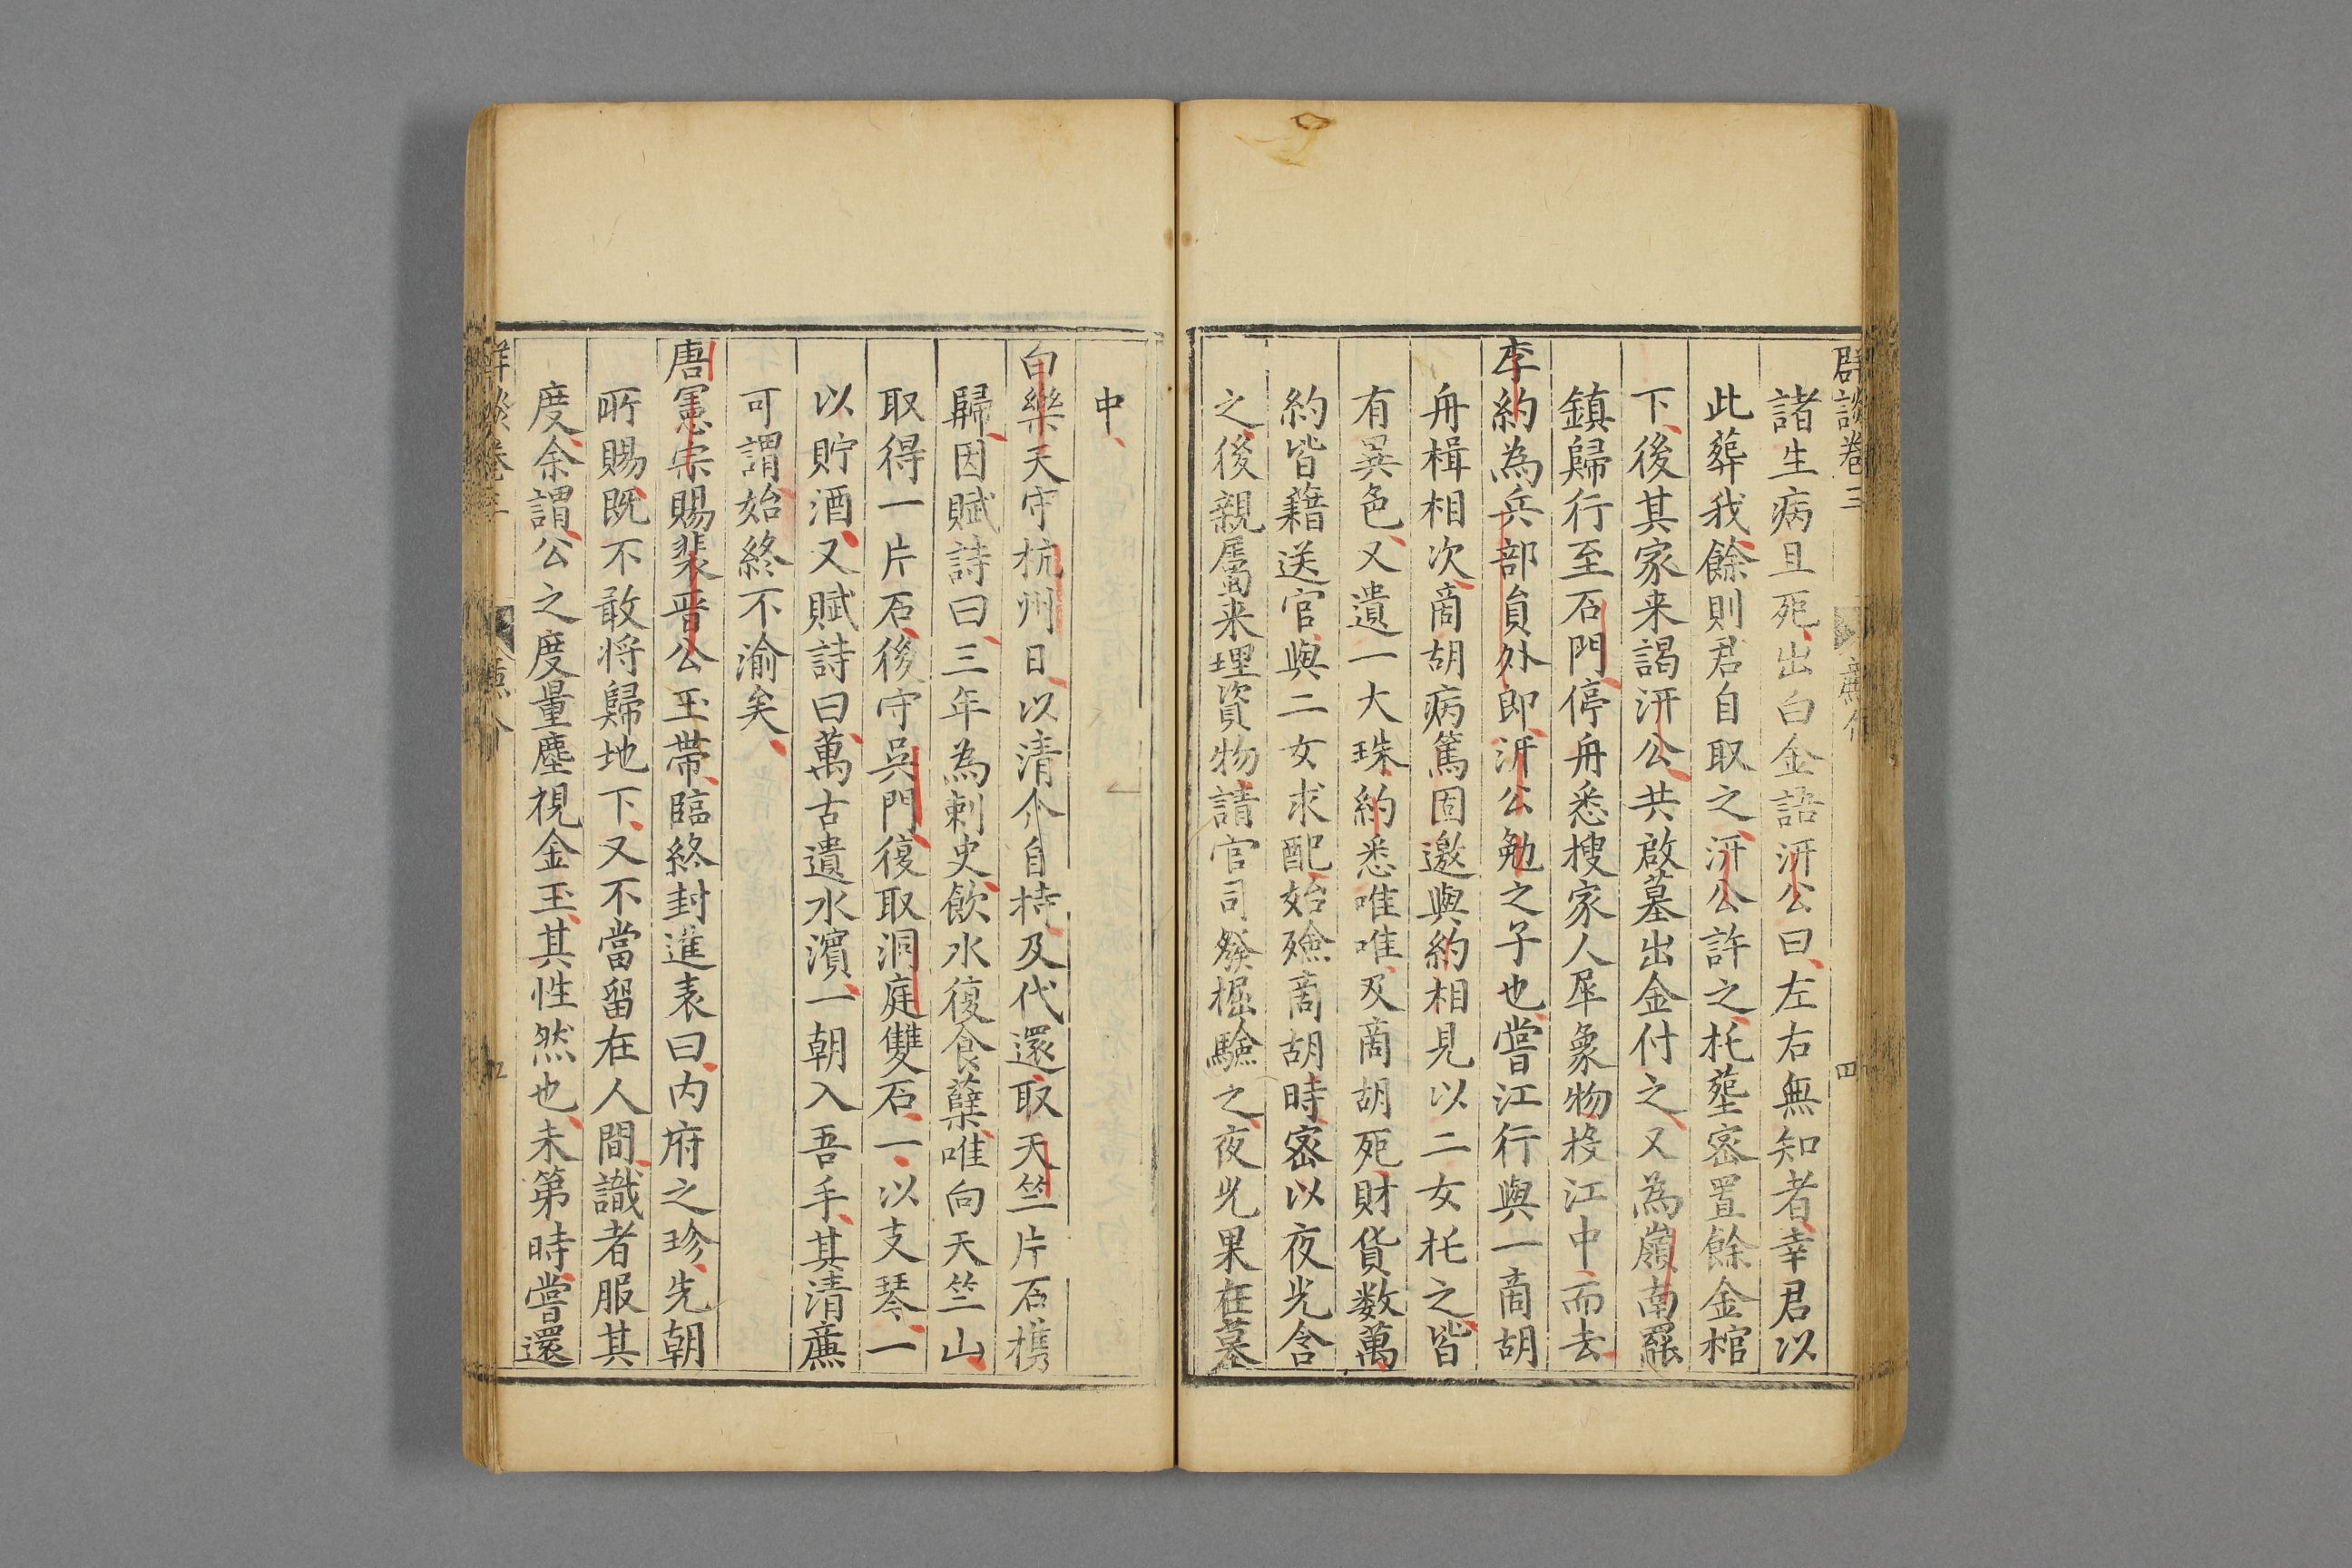 群談卷三 廉介 四
諸生病且死出白金語汧公曰左右無知者幸君以
此葬我餘則君自取之汧公許之托塟密置餘金棺
下後其家来謁汧公共啟墓出金付之又為嶺南罷
鎮歸行至石門停舟悉搜家人犀象物投江中而去
李約為兵部貟外郎汧公勉之子也嘗江行與一商胡
舟楫相次商胡病篤固邀與約相見以二女托之皆
有異色又遺一大珠約悉唯唯及商胡死財貨数萬
約皆籍送官與二女求配始殮商胡時密以夜光含
之後親屬来理資物請官司發掘驗之夜光果在墓
中
白樂天守杭州日以清介自持及代還取天竺片石携
歸因賦詩曰三年為刺史飲水復食蘖唯向天竺山
取得一片石後守吳門復取洞庭雙石一以支琴一
以貯酒又賦詩曰萬古遺水濱一朝入吾手其清廉
可謂始終不渝矣
唐憲宗賜裴晋公玉帶臨終封進表曰内府之珍先朝
所賜既不敢将歸地下又不當留在人間識者服其
度余謂公之度量塵視金玉其性然也未第時嘗還